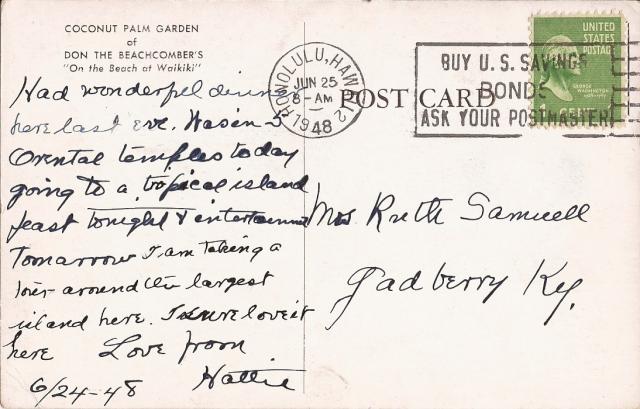 COCONUT PALM GARDEN
of
DON THE BEACHCOMBER'S
"On the Beach at Waikiki"
Had wonderful dinner
here last eve. Was in 5
Orental temples today
going to a tropical island
feast tonight & entertainment
Tomarrow I am taking a
tour around the largest
island here. I sure love it
here Love from
Hattie
6/24-48
HONOLULU, HAWAII 2
JUN 25
8-AM
1948
POST CARD
BUY U.S. SAVINGS
BONDS
ASK YOUR POSTMASTER
UNITED
STATES
POSTAGE
GEORGE
WASHINGTON
Mrs Ruth Samuell
Gadberry Ky.